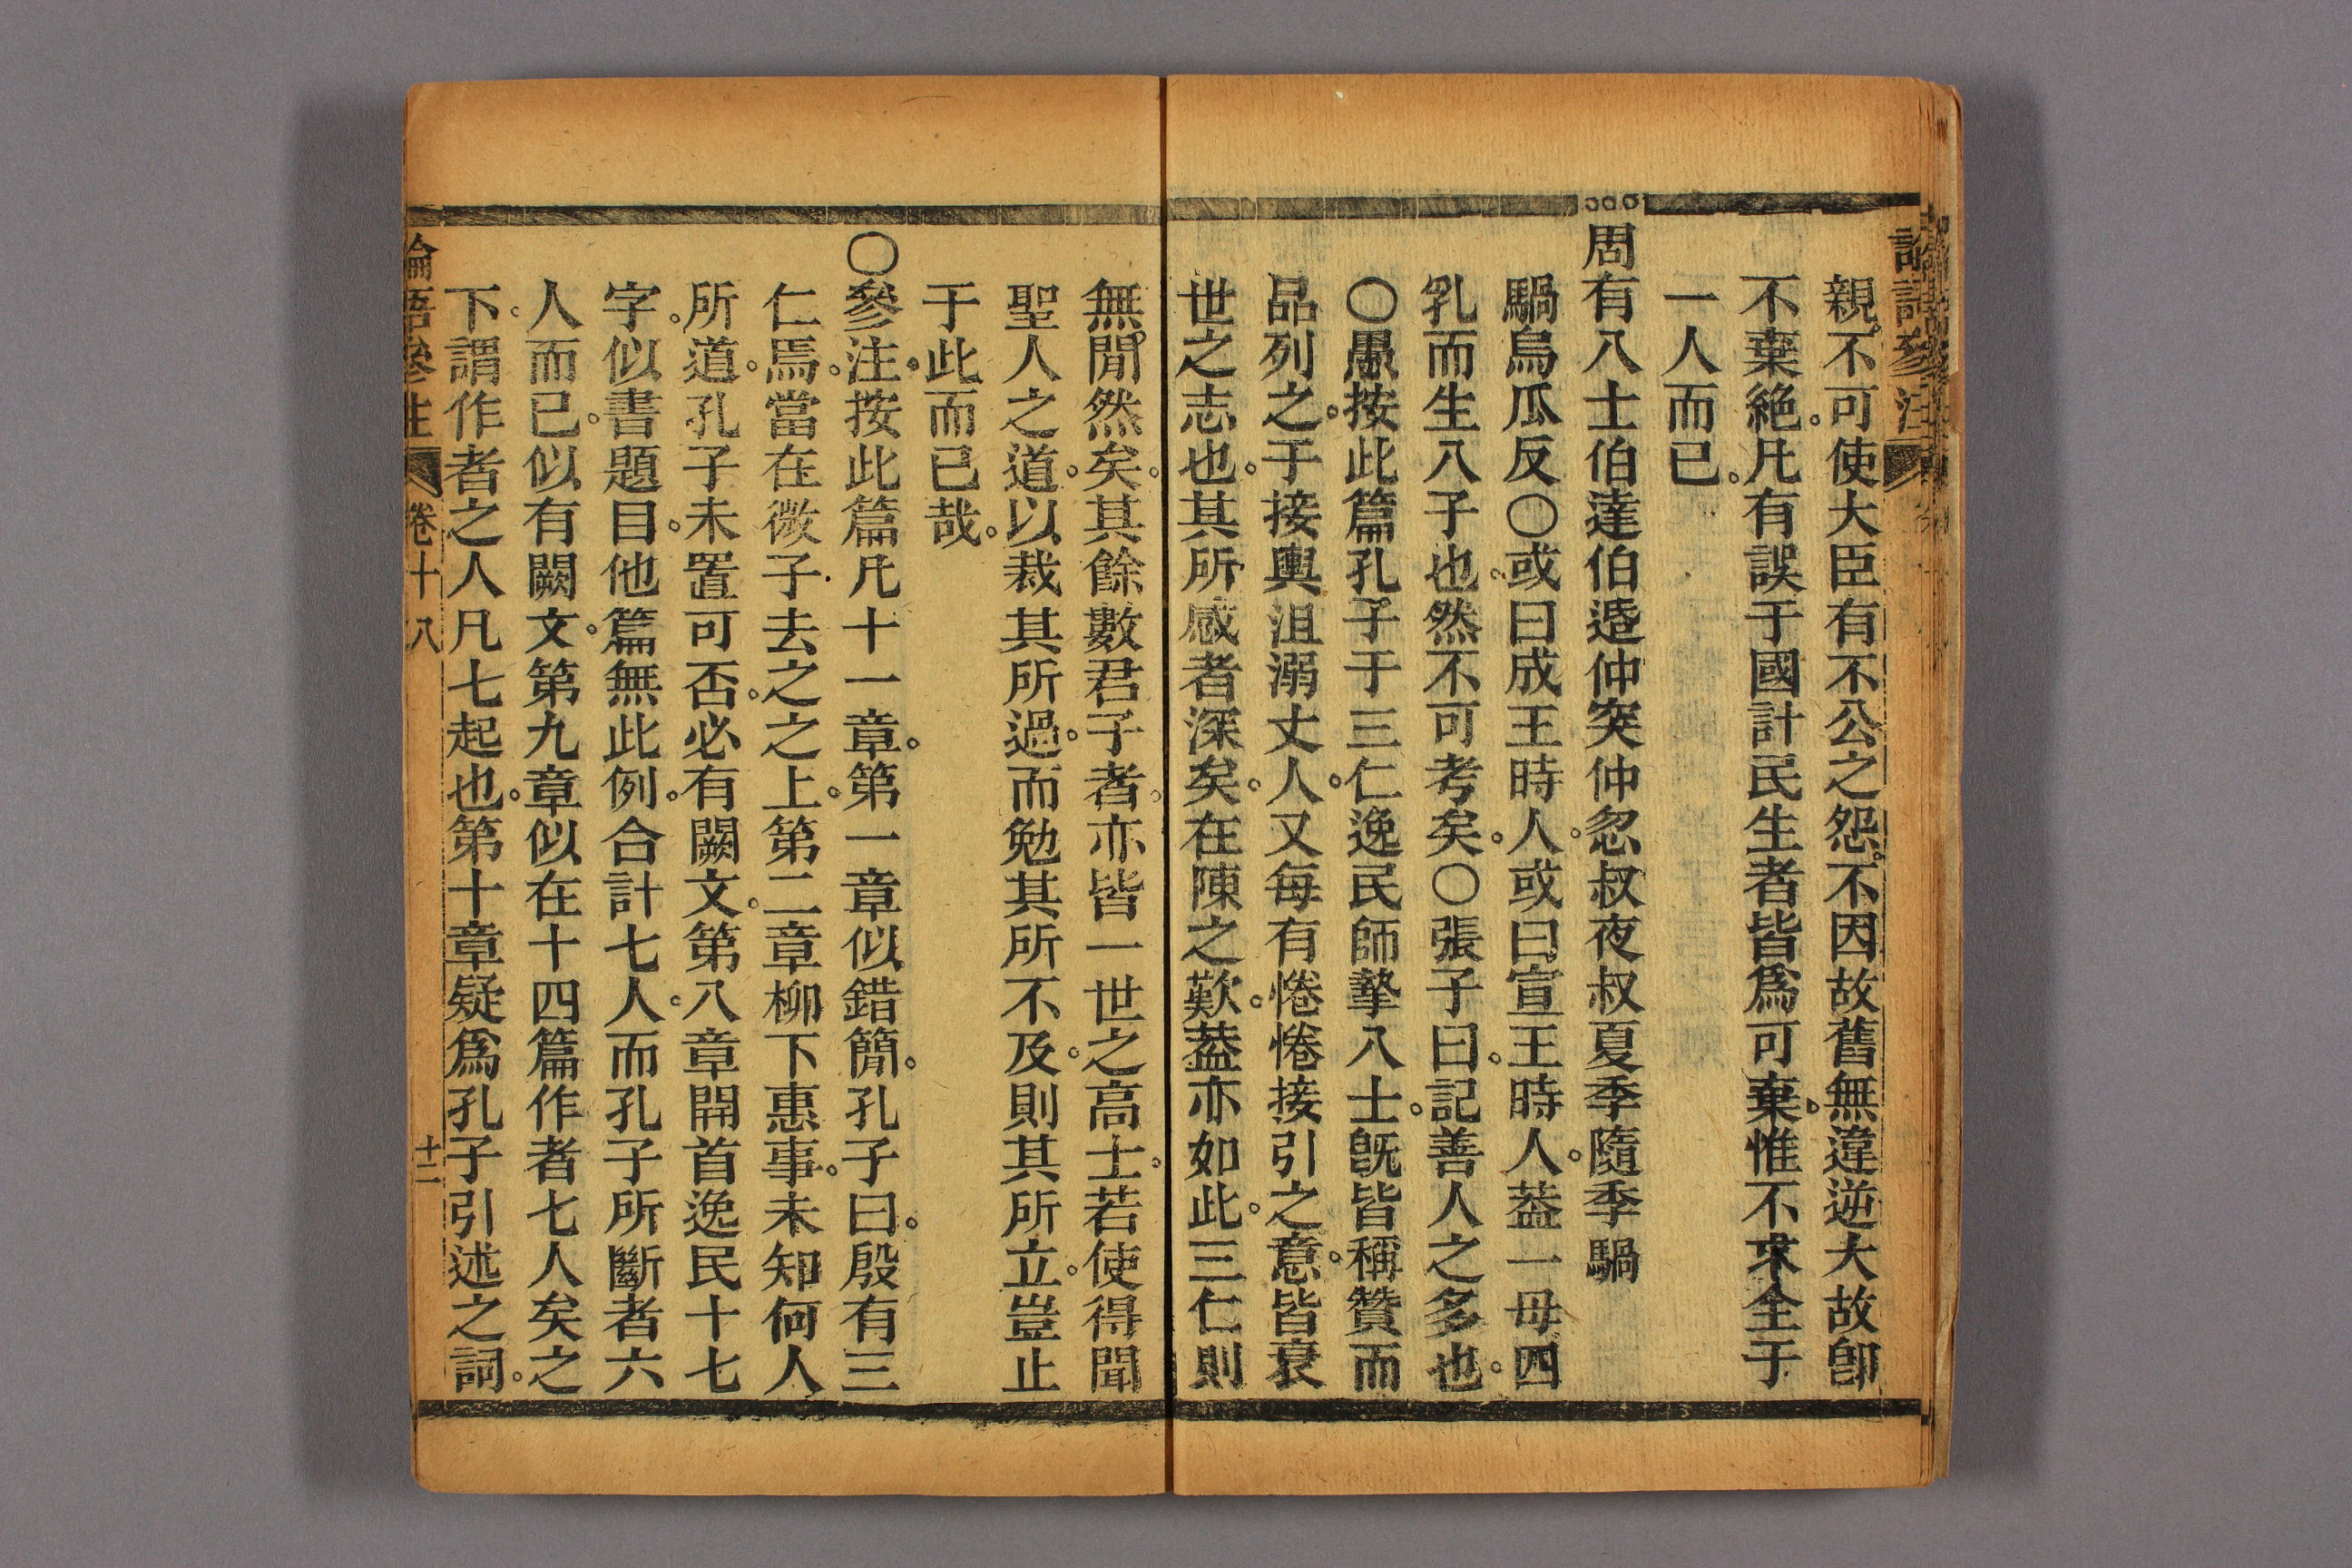 論語參注
親不可使大臣有不公之怨不因故舊無違逆大故卽
不棄絶凡有誤于國計民生者皆爲可棄惟不求全于
一人而已
周有八士伯達伯适仲突仲忽叔夜叔夏季隨季騧
騧烏瓜反○或曰成王時人或曰宣王時人葢一母四
乳而生八子也然不可考矣○張子曰記善人之多也
○愚按此篇孔子于三仁逸民師摯八士旣皆稱贊而
品列之于接輿沮溺丈人又每有惓惓接引之意皆衰
世之志也其所感者深矣在陳之歎葢亦如此三仁則
無閒然矣其餘數君子者亦皆一世之高士若使得聞
聖人之道以裁其所過而勉其所不及則其所立豈止
于此而已哉
○參注按此篇凡十一章第一章似錯簡孔子曰殷有三
仁焉當在微子去之之上第二章柳下惠事未知何人
所道孔子未置可否必有闕文第八章開首逸民十七
字似書題目他篇無此例合計七人而孔子所斷者六
人而已似有闕文第九章似在十四篇作者七人矣之
下謂作者之人凡七起也第十章疑爲孔子引述之詞
論語參注 卷十八 十二